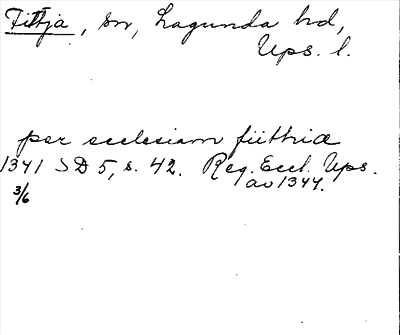 Fittja, sn, Lagunda hd,
Ups. l.
per ecclesiam fiithia
1341 SD 5, s. 42. Reg. Eccl. Ups.
3/6 av 1344.